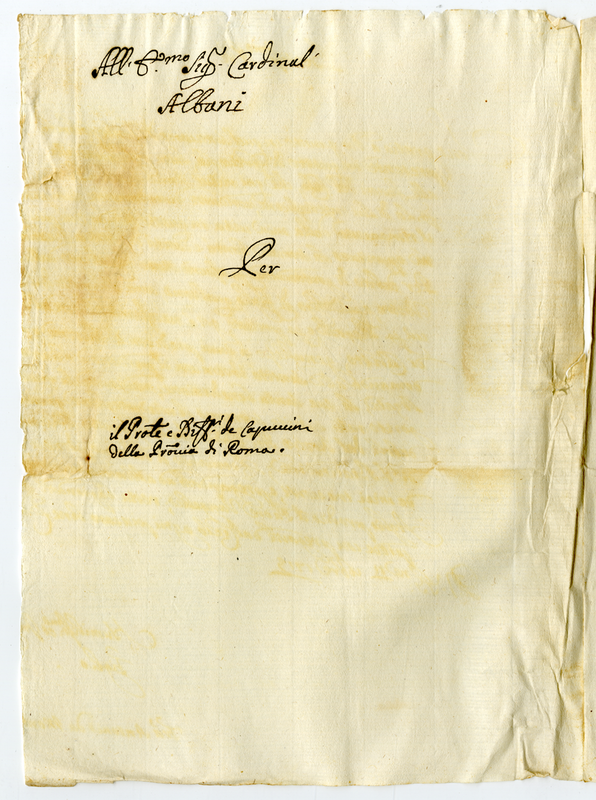 All' E.mo Sig.r Cardinal'
Albani
Per
il Prọ̃le e Diff.ri de Capuccini
della Prõuia di Roma.